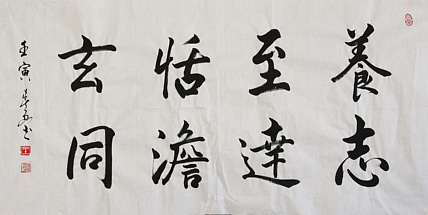 養志
至達
恬澹
玄同
壬寅